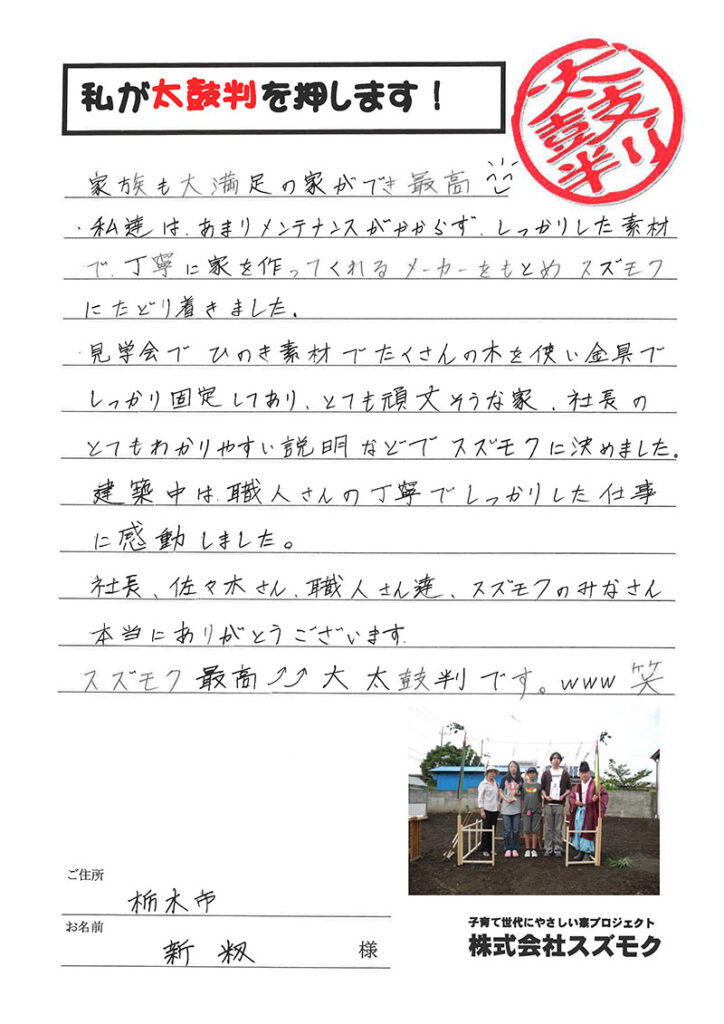 私が太鼓判を押します！
太鼓判
家族も大満足の家ができ最高
・私達は、あまりメンテナンスがかからず、しっかりした素材
で、丁寧に家を作ってくれるメーカーをもとめ スズモク
にたどり着きました。
・見学会で ひのき素材でたくさんの木を使い金具で
しっかり固定してあり、とても頑丈そうな家、社長の
とてもわかりやすい説明などで スズモクに決めました。
建築中は、職人さんの丁寧でしっかりした仕事
に感動しました。
社長、佐々木さん、職人さん達、スズモクのみなさん
本当にありがとうございます。
スズモク 最高⤴⤴ 大 太鼓判です。www 笑
ご住所
栃木市
お名前
新籾 様
子育て世代にやさしい家プロジェクト
株式会社スズモク